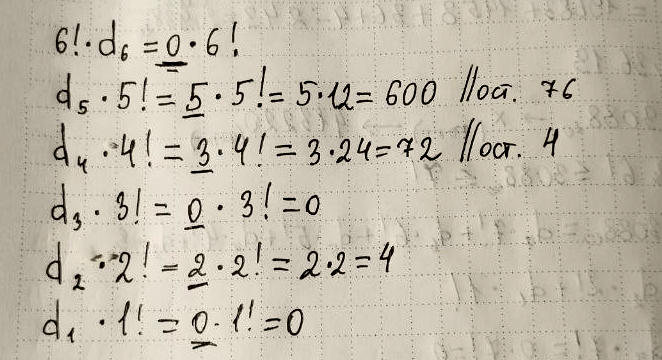 6! · d₆ = 0 · 6!
d₅ · 5! = 5 · 5! = 5·12 = 600 //ост. 76
d₄ · 4! = 3 · 4! = 3·24 = 72 //ост. 4
d₃ · 3! = 0 · 3! = 0
d₂ · 2! = 2 · 2! = 2·2 = 4
d₁ · 1! = 0 · 1! = 0